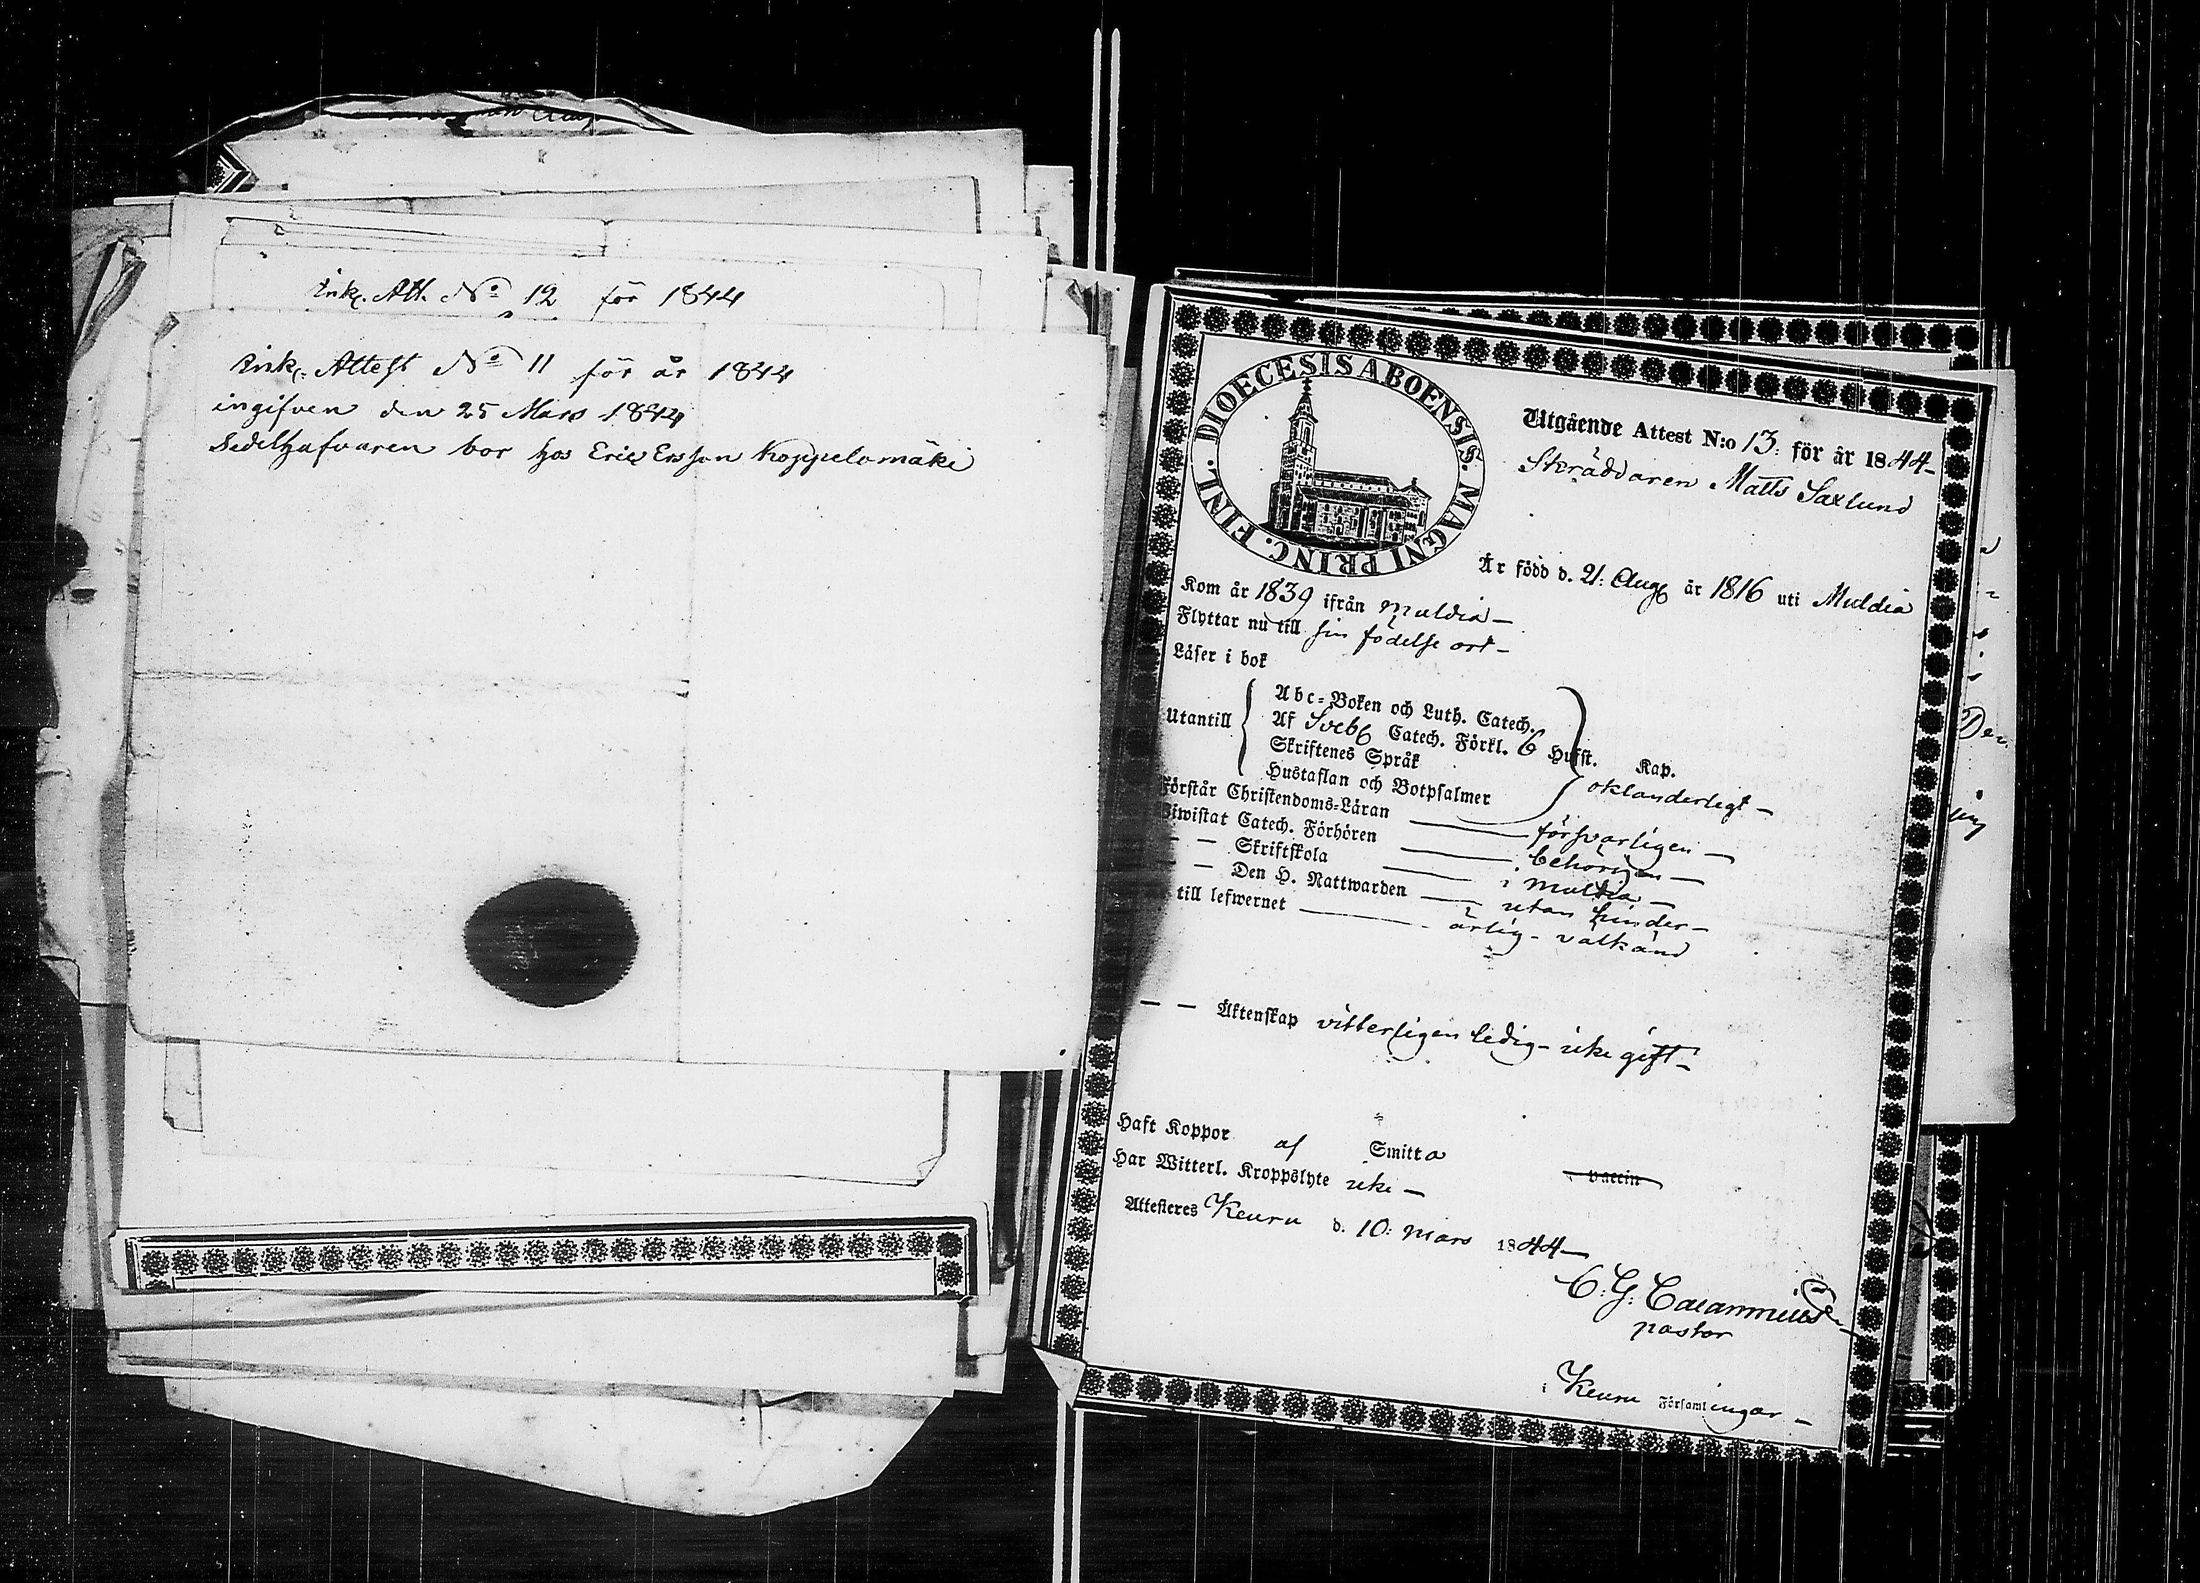 Ink. Att. No 12 för 1844
Ink. Attest No 11 för år 1844
ingifven den 25 Mars 1844
Sedelhafvaren bor hos Eric Ersson Koppelomäki
DIOECESIS ABOENSIS. MAGNI PRINC. FINL.
Utgående Attest N:o 13: för år 1844-
Skräddaren Matts Saxlund
Är född d. 21: Aug. år 1816 uti Muldia
Kom år 1839 ifrån Muldia-
Flyttar nu till sin födelse ort-
Läser i bok
Utantill
Abc-Boken och Luth. Catech.
Af Sveb. Catech. Förkl. 6 Hufst. Kap.
Skriftenes Språk
Hustaflan och Botpsalmer
oklanderligt-
Förstår Christendoms-Läran försvarligen-
Biwistat Catech. Förhören behörigen-
- - Skriftskola i Multia-
- - Den H. Nattwarden utan hinder-
till lefwernet ärlig- välkänd
- - Äktenskap vitterligen ledig- icke gift-
Haft Koppor af Smitta vaccin
Har Witterl. Kroppslyte icke-
Attesteres Keuru d. 10: Mars 1844-
C. G.
pastor
i Keuru Församlingar-